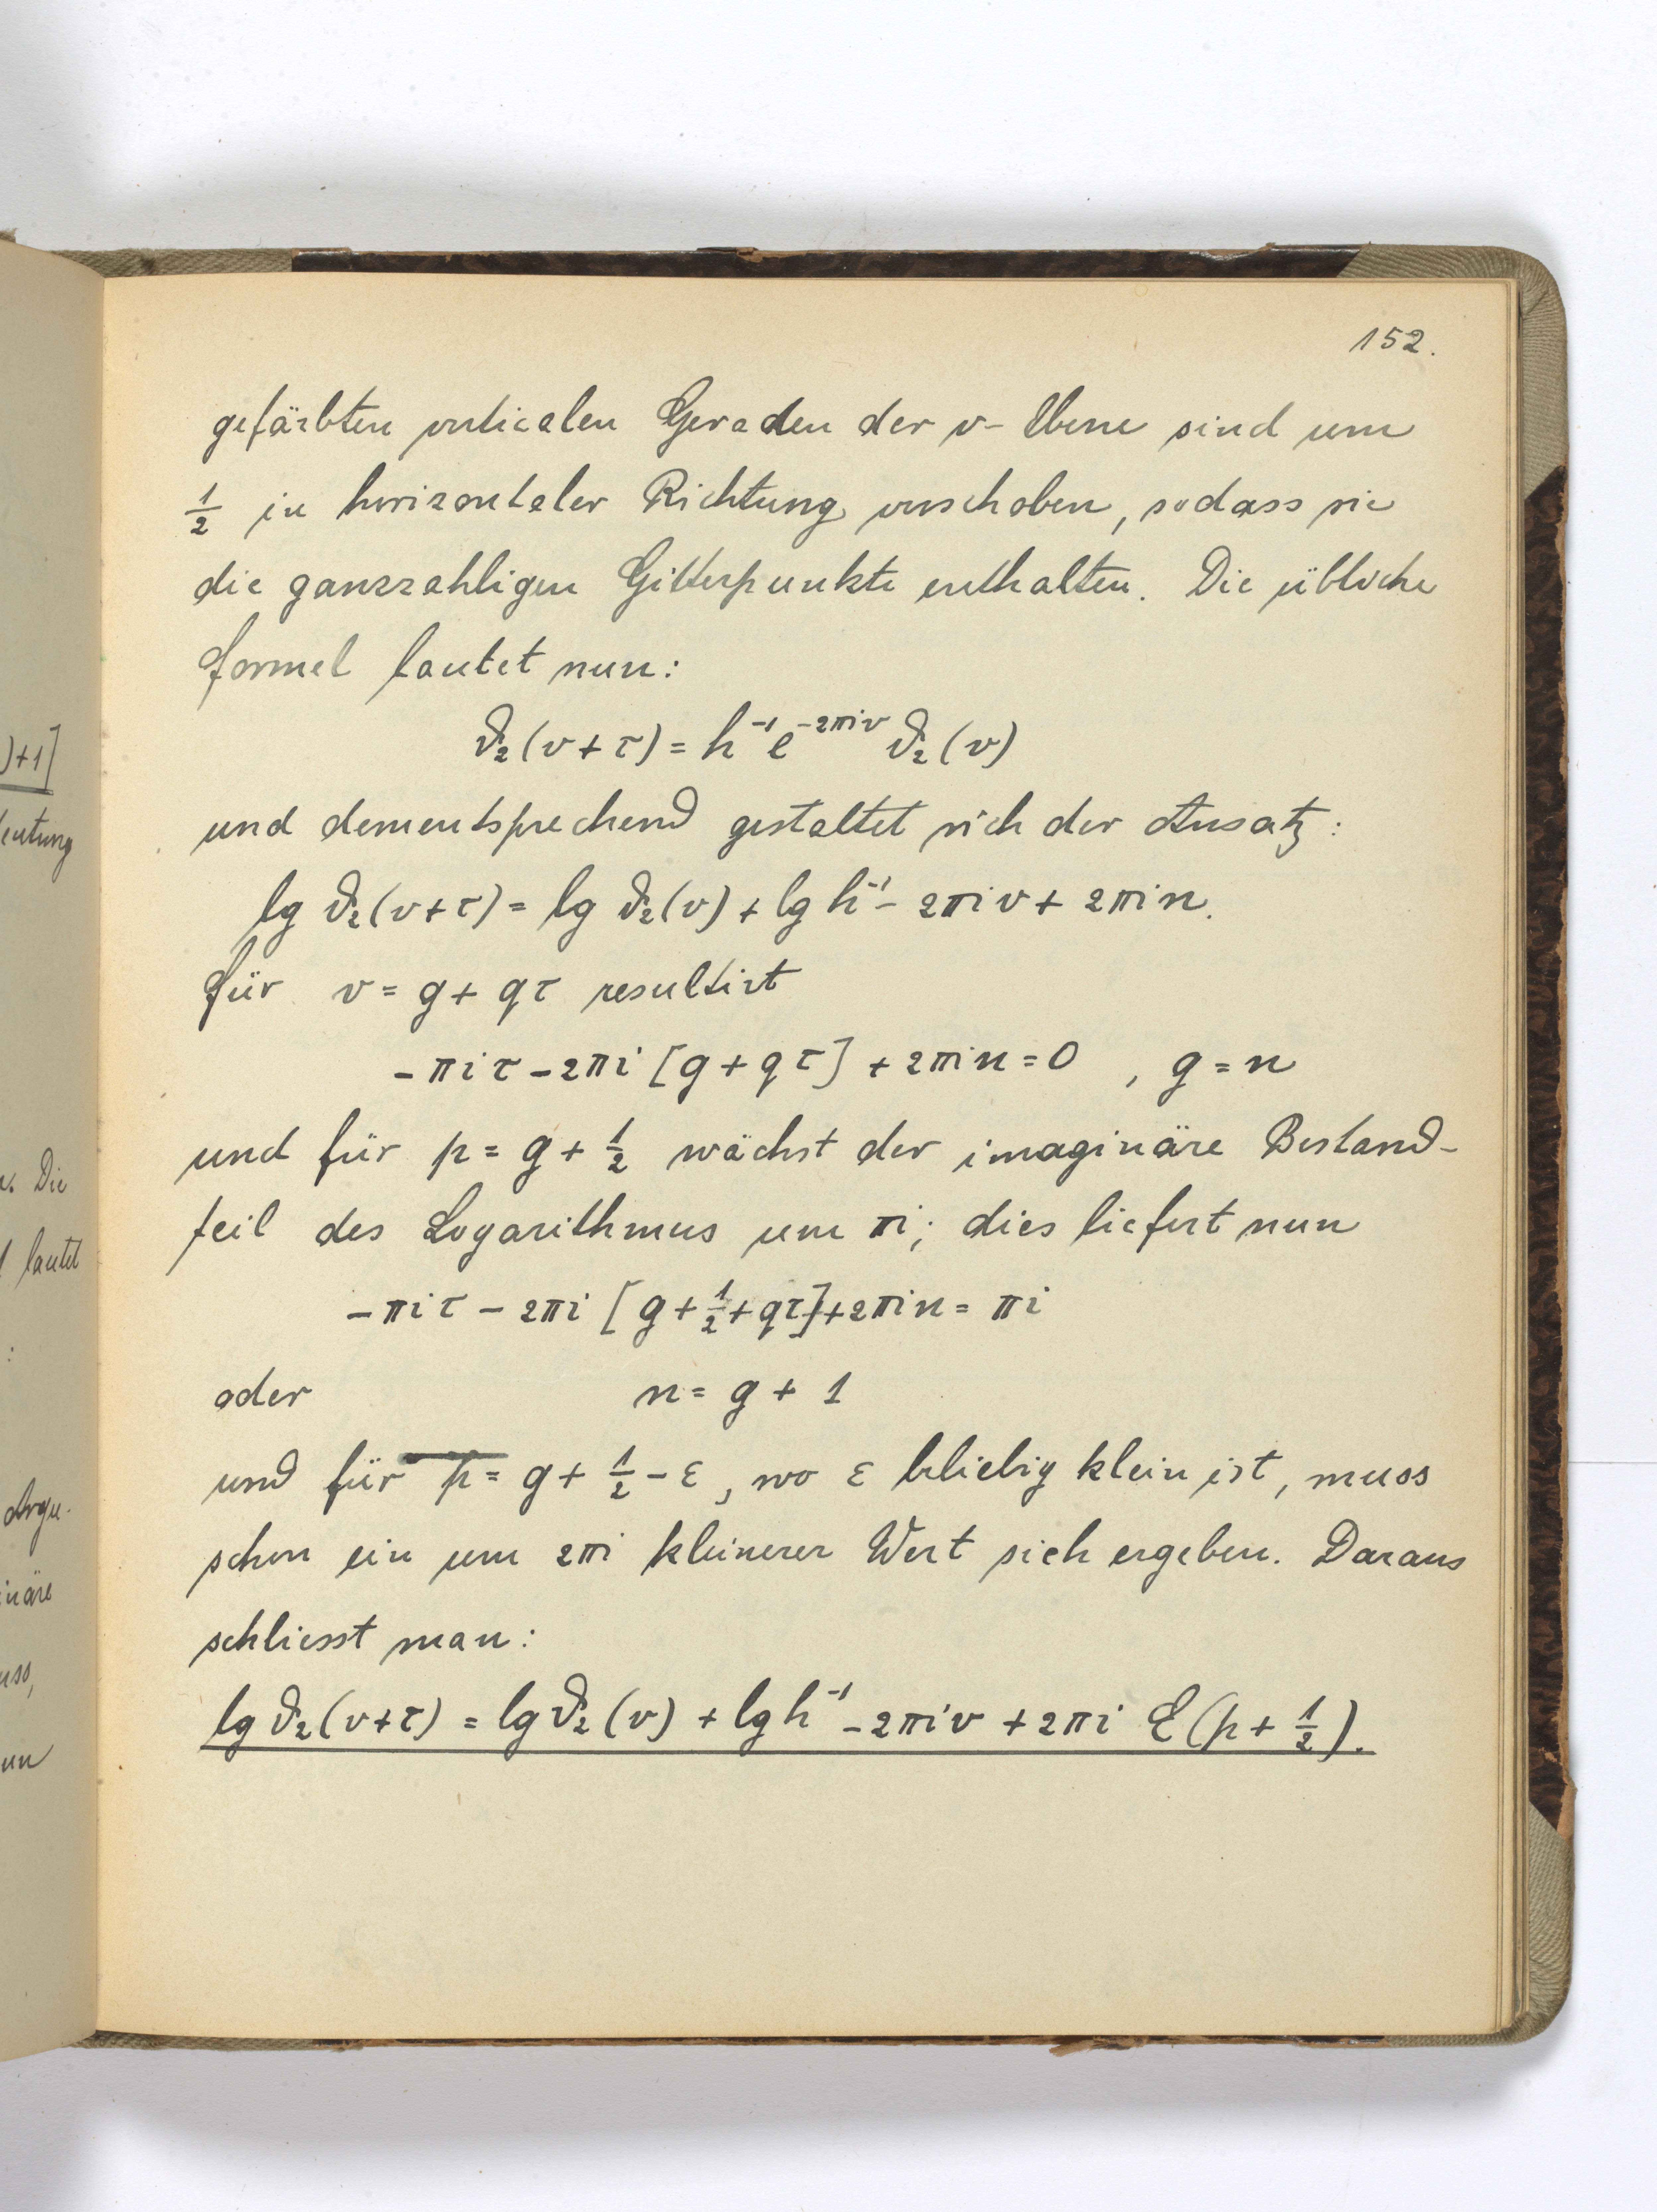 152.
gefärbten verticalen Geraden der v-Ebene sind um
1/2 in horizontaler Richtung verschoben, sodass sie
die ganzzahligen Gitterpunkte enthalten. Die übliche
Formel lautet nun:
ϑ₂(v+τ) = h⁻¹ e^{-2πiv} ϑ₂(v)
und dementsprechend gestaltet sich der Ansatz:
lg ϑ₂(v+τ) = lg ϑ₂(v) + lg h⁻¹ - 2πiv + 2πin.
Für v = g + qτ resultirt
-πiτ - 2πi [g + qτ] + 2πin = 0 , g = n
und für p = g + 1/2 wächst der imaginäre Bestand-
teil des Logarithmus um πi; dies liefert nun
-πiτ - 2πi [g + 1/2 + qτ] + 2πin = πi
oder n = g + 1
und für p = g + 1/2 - ε, wo ε beliebig klein ist, muss
schon ein um 2πi kleinerer Wert sich ergeben. Daraus
schliesst man:
lg ϑ₂(v+τ) = lg ϑ₂(v) + lg h⁻¹ - 2πiv + 2πi E(p + 1/2).
)+1]
eutung
Die
lautet
:
Argu-
inäre
uss,
un